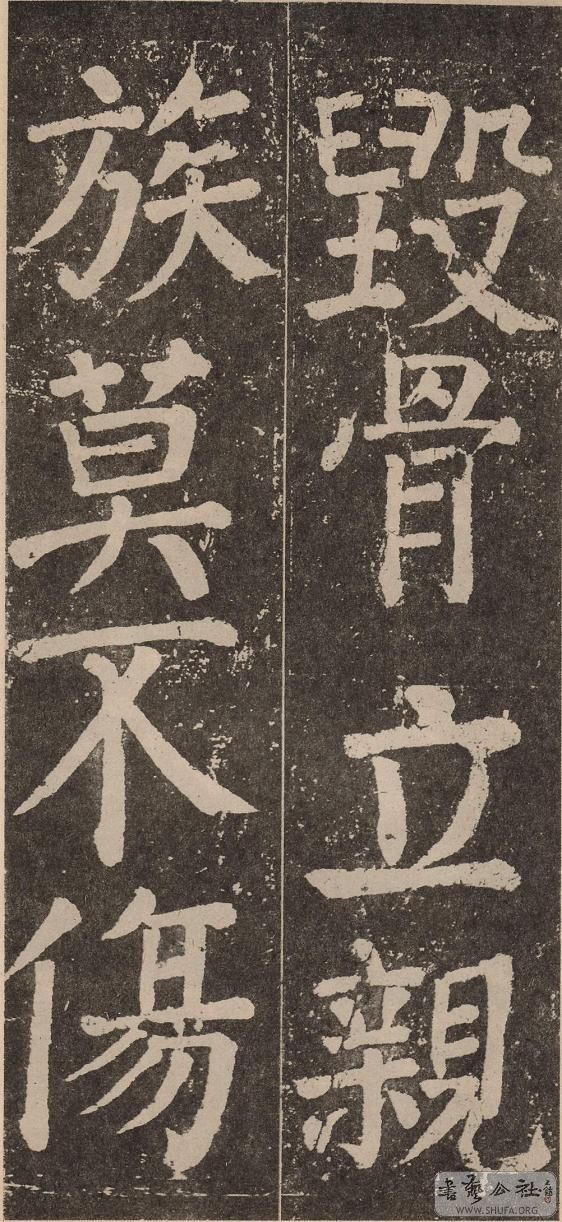 毀骨立親
族莫不傷
書藝公社
WWW.SHUFA.ORG